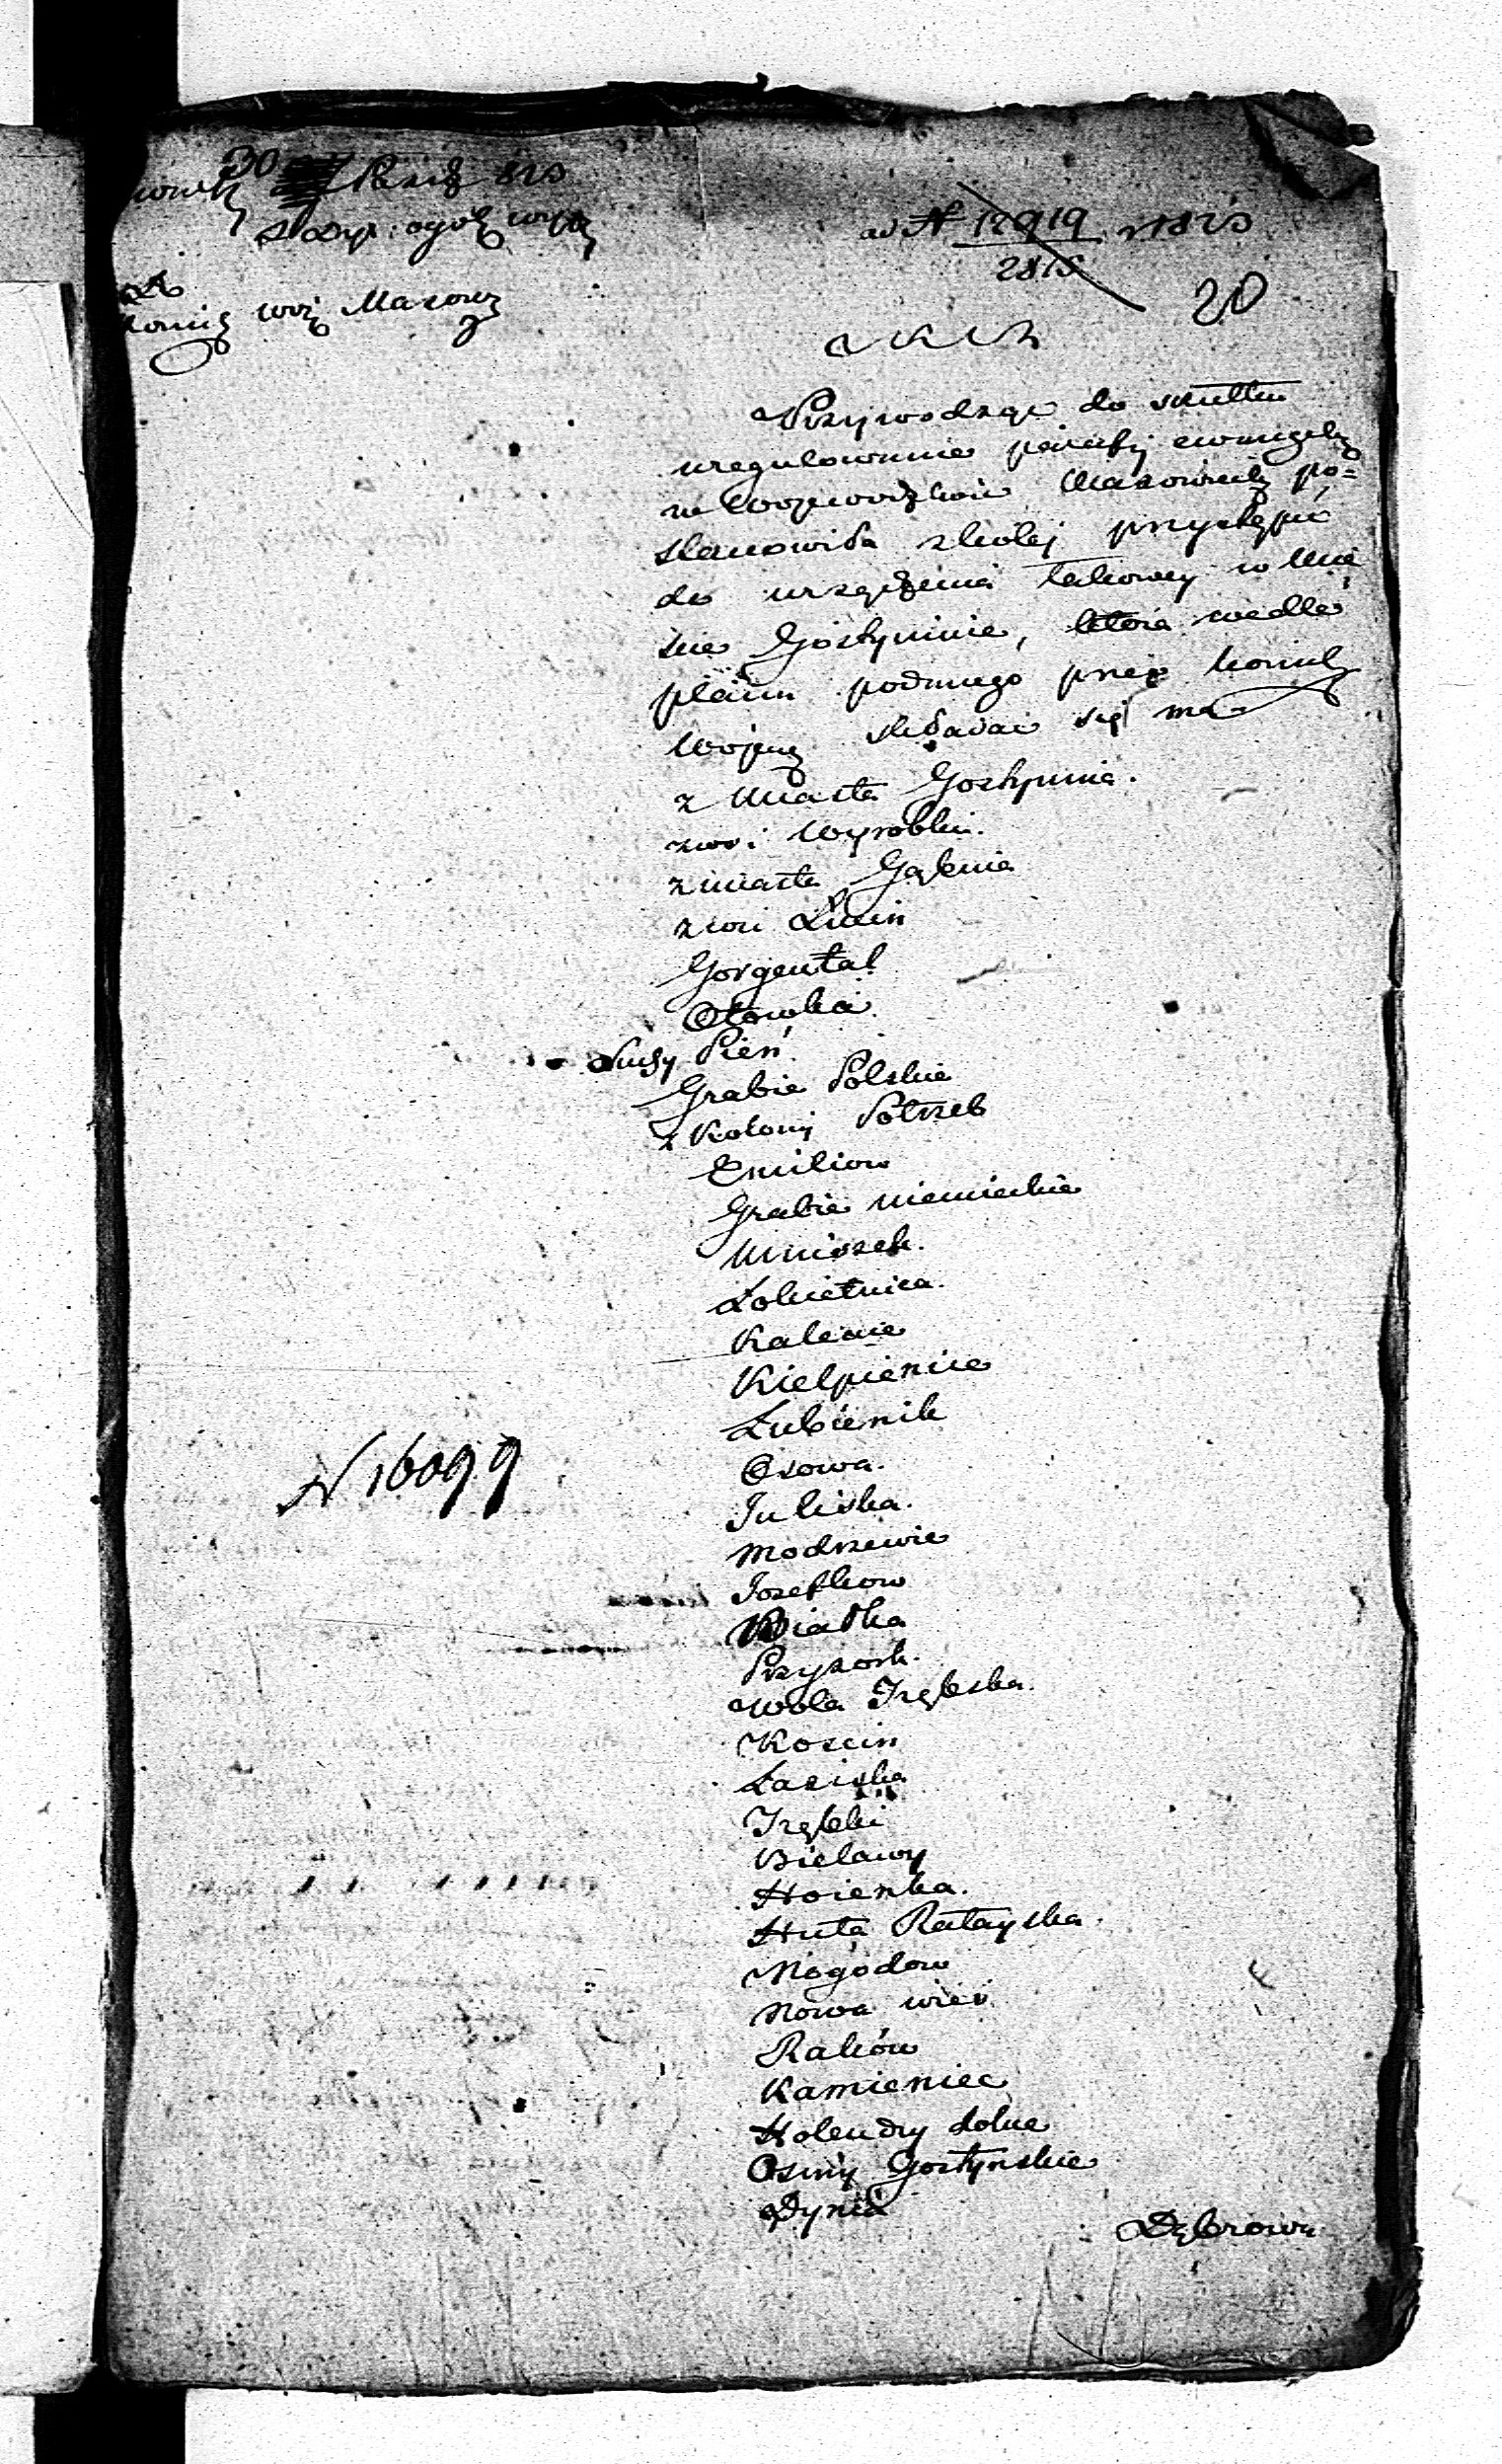 30 Paźd 828
ad N 12919 1828
2815
20
Kom Woj Mazow
Przywodząc do skutku
uregulowanie parafij ewangel
w Wojewodztwie Mazowiec po=
stanowiła zkolej przystąpić
do urządzenia takowey w Mie
ście Gostyninie, która wedle
planu podanego przez Komis
Wojew składać się ma
z Miasta Gostynina.
z wsi Wyrobki.
z miasta Gąbina
z wsi Lucin
Gorgental
Otowka
Suchy Pień
Grabie Polskie
z Kolonij Potrzeb
Emiliow
Grabie niemieckie
Mniszek.
Lokietnica.
Kalenie
Kielpieniec
Lubienik
Osowa.
Juliska.
Modrzewie
Jozefkow
Białka
Przyzork.
Wola Trębska.
Koscin
Laziska
Trębki
Bielawy
Hoienka.
Huta Ratayska.
Nagodow
Nowa wieś
Raków
Kamieniec
Holendry dolne
Osiny Gostynskie
Dynia
Dąbrowa
N 16099